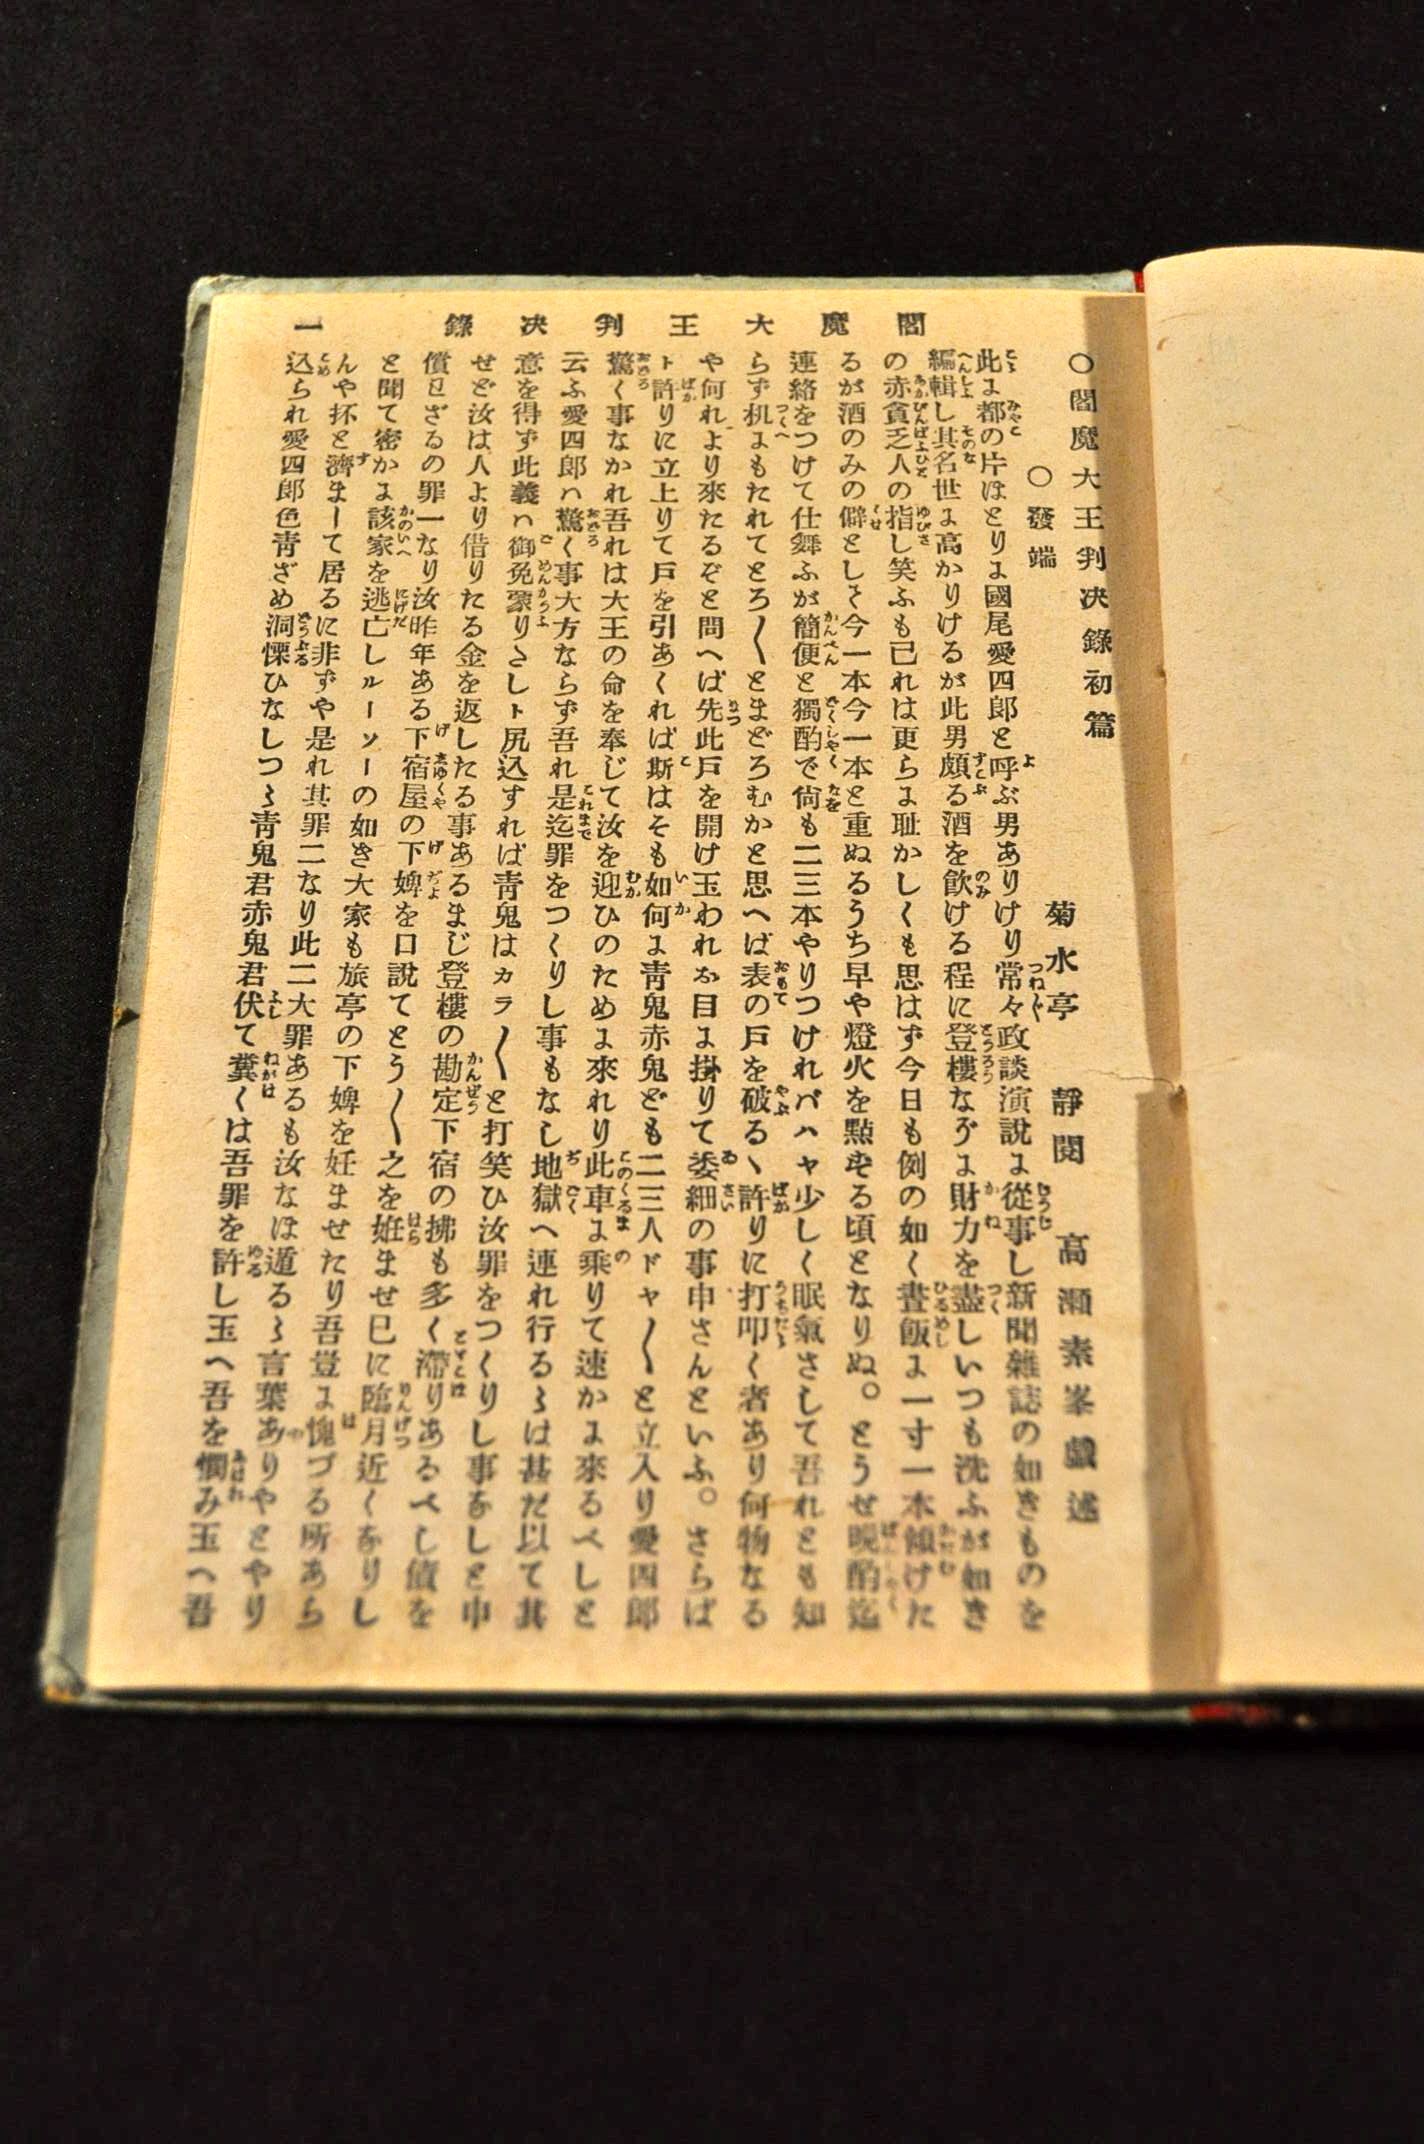 閻魔大王判决錄 一
〇閻魔大王判决錄初篇
菊水亭 靜閱
高瀬素峯戯述
〇發端
此に都の片ほとりに國尾愛四郎と呼ぶ男ありけり常々政談演説に從事し新聞雜誌の如きものを
編輯し其名世に高かりけるが此男頗る酒を飮ける程に登樓などに財力を盡しいつも洗ふが如き
の赤貧乏人の指し笑ふも己れは更らに耻かしくも思はず今日も例の如く晝飯に一寸一本傾けた
るが酒のみの僻として今一本今一本と重ぬるうち早や燈火を點ずる頃となりぬ。とうせ晩酌迄
連絡をつけて仕舞ふが簡便と獨酌で尙も二三本やりつけれバハヤ少しく眠氣さして吾れとも知
らず机にもたれてとろ〱とまどろむかと思へば表の戸を破るヽ許りに打叩く者あり何物なる
や何れより來たるぞと問へば先此戸を開け玉われお目に掛りて委細の事申さんといふ。さらば
ト許りに立上りて戸を引あくれば斯はそも如何に靑鬼赤鬼ども二三人ドヤ〱と立入り愛四郎
驚く事なかれ吾れは大王の命を奉じて汝を迎ひのために來れり此車に乘りて速かに來るべしと
云ふ愛四郎ハ驚く事大方ならず吾れ是迄罪をつくりし事もなし地獄へ連れ行るゝは甚だ以て其
意を得ず此義ハ御免蒙りたしト尻込すれば靑鬼はカラ〱と打笑ひ汝罪をつくりし事なしと申
せど汝は人より借りたる金を返したる事あるまじ登樓の勘定下宿の拂も多く滯りあるべし債を
償はざるの罪一なり汝昨年ある下宿屋の下婢を口説てとう〱之を姙ませ已に臨月近くなりし
と聞て密かに該家を逃亡しルーソーの如き大家も旅亭の下婢を妊ませたり吾豈に愧づる所あら
んや抔と濟まーて居るに非ずや是れ其罪二なり此二大罪あるも汝なほ遁るゝ言葉ありやとやり
込られ愛四郎色靑ざめ洞慄ひなしつゝ靑鬼君赤鬼君伏て糞くは吾罪を許し玉へ吾を憫み玉へ吾